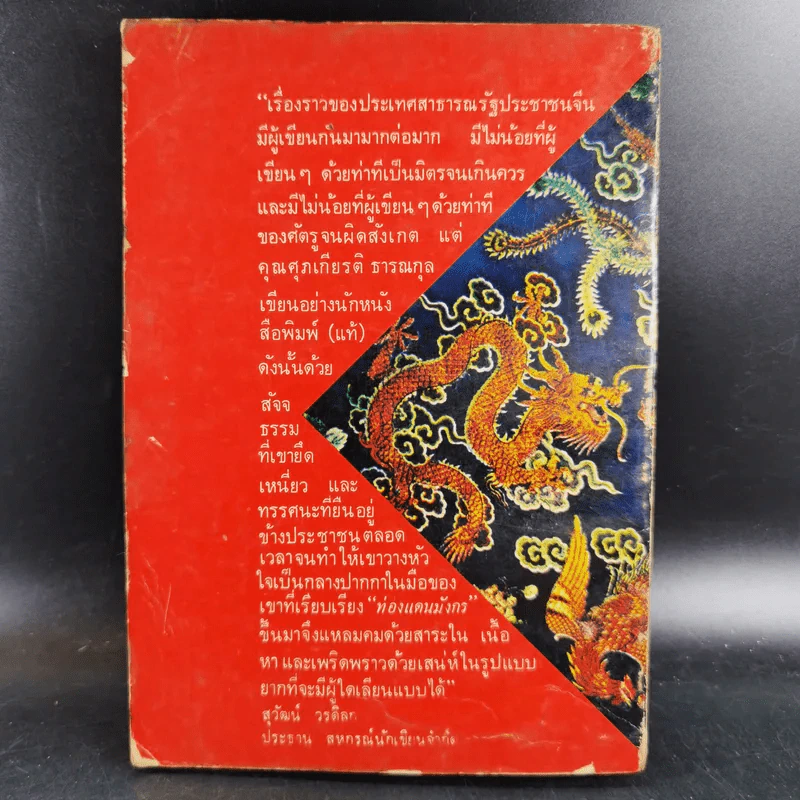 “เรื่องราวของประเทศสาธารณรัฐประชาชนจีน
มีผู้เขียนกันมามากต่อมาก มีไม่น้อยที่ผู้
เขียนๆ ด้วยท่าทีเป็นมิตรจนเกินควร
และมีไม่น้อยที่ผู้เขียนๆด้วยท่าที
ของศัตรูจนผิดสังเกต แต่
คุณศุภเกียรติ ธารณกุล
เขียนอย่างนักหนัง
สือพิมพ์ (แท้)
ดังนั้นด้วย
สัจจ
ธรรม
ที่เขายึด
เหนี่ยว และ
ทรรศนะที่ยืนอยู่
ข้างประชาชนตลอด
เวลาจนทำให้เขาวางหัว
ใจเป็นกลางปากกาในมือของ
เขาที่เรียบเรียง “ท่องแดนมังกร”
ขึ้นมาจึงแหลมคมด้วยสาระใน เนื้อ
หาและเพริดพราวด้วยเสน่ห์ในรูปแบบ
ยากที่จะมีผู้ใดเลียนแบบได้”
สุวัฒน์ วรดิลก
ประธาน สหกรณ์นักเขียนจำกัด